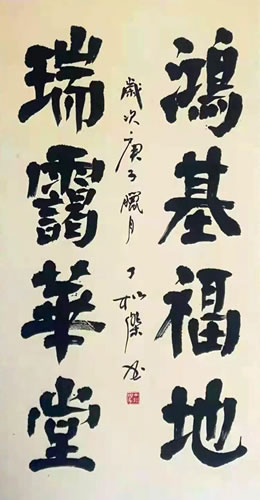 鴻基福地
瑞靄華堂
歲次庚子臘月
丁松傑書